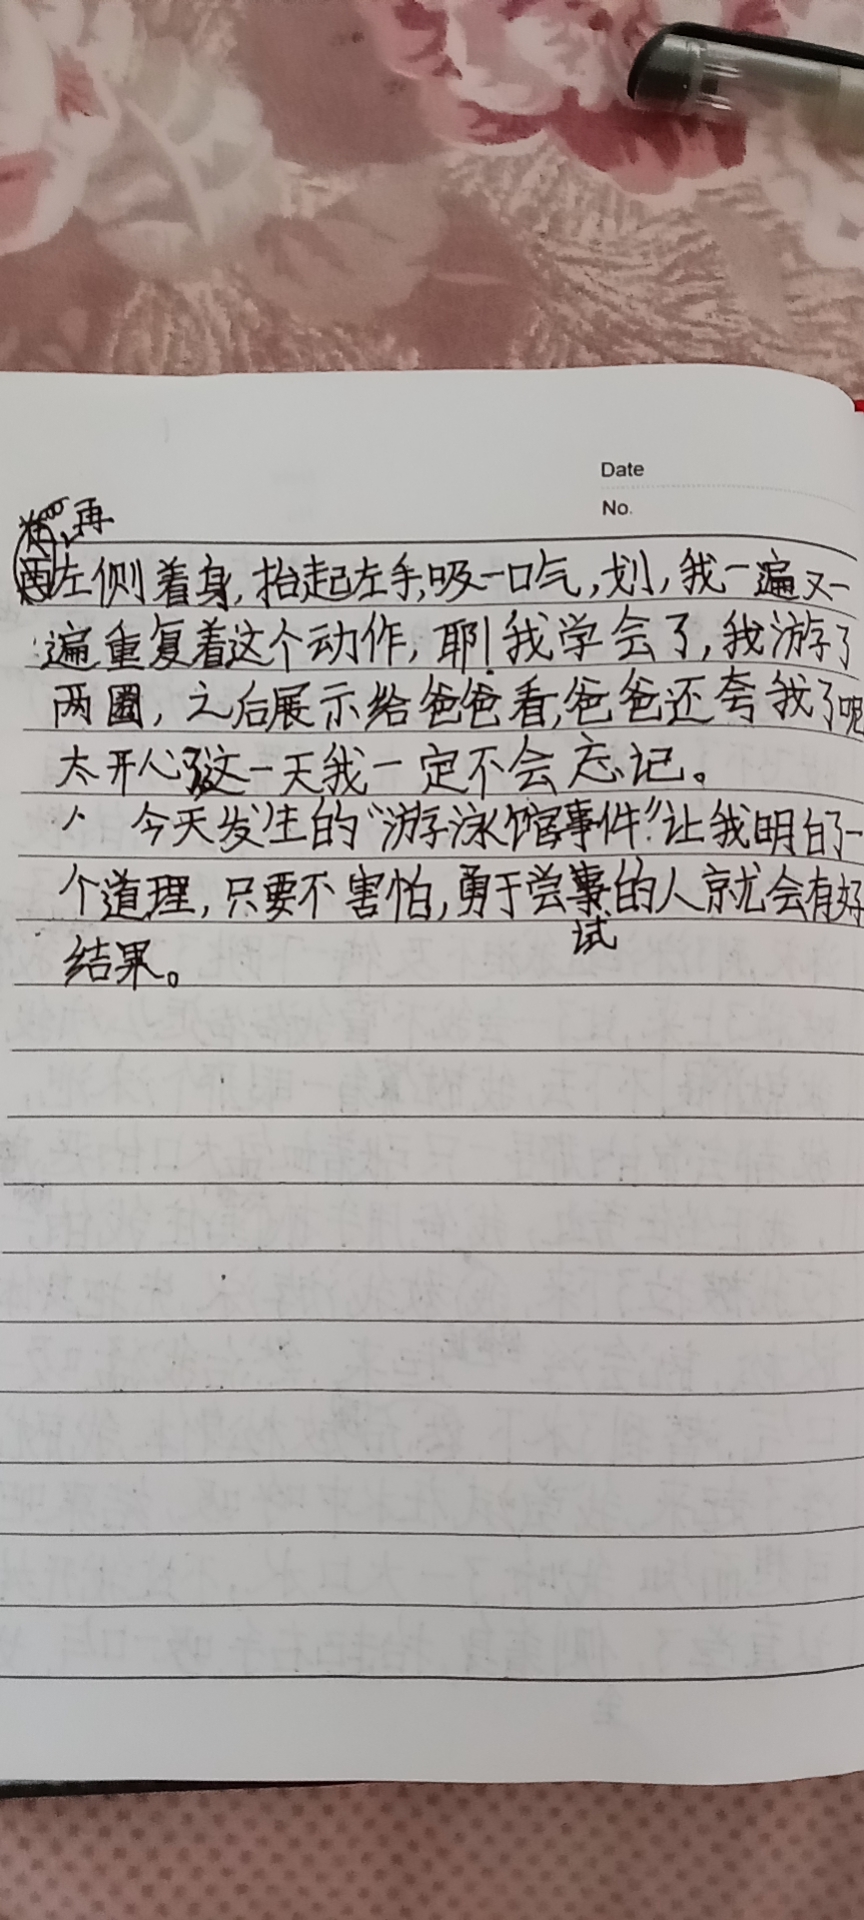 Date
No.
再
左侧着身,抬起左手,吸一口气,划,我一遍又一
遍重复着这个动作,耶!我学会了,我游了
两圈,之后展示给爸爸看,爸爸还夸我了呢
太开心了这一天我一定不会忘记。
今天发生的“游泳馆事件”让我明白了一
个道理,只要不害怕,勇于尝试的人就会有好
结果。